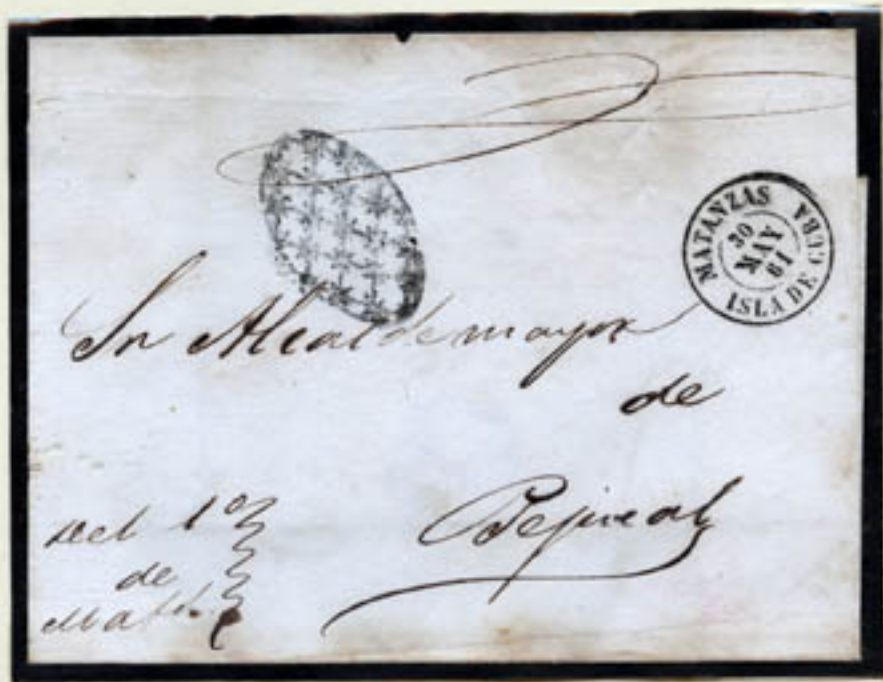 MATANZAS
30
MAY
61
ISLA DE CUBA
Sr Alcalde mayor
de
Bejucal
del 1º
de
Matzs.